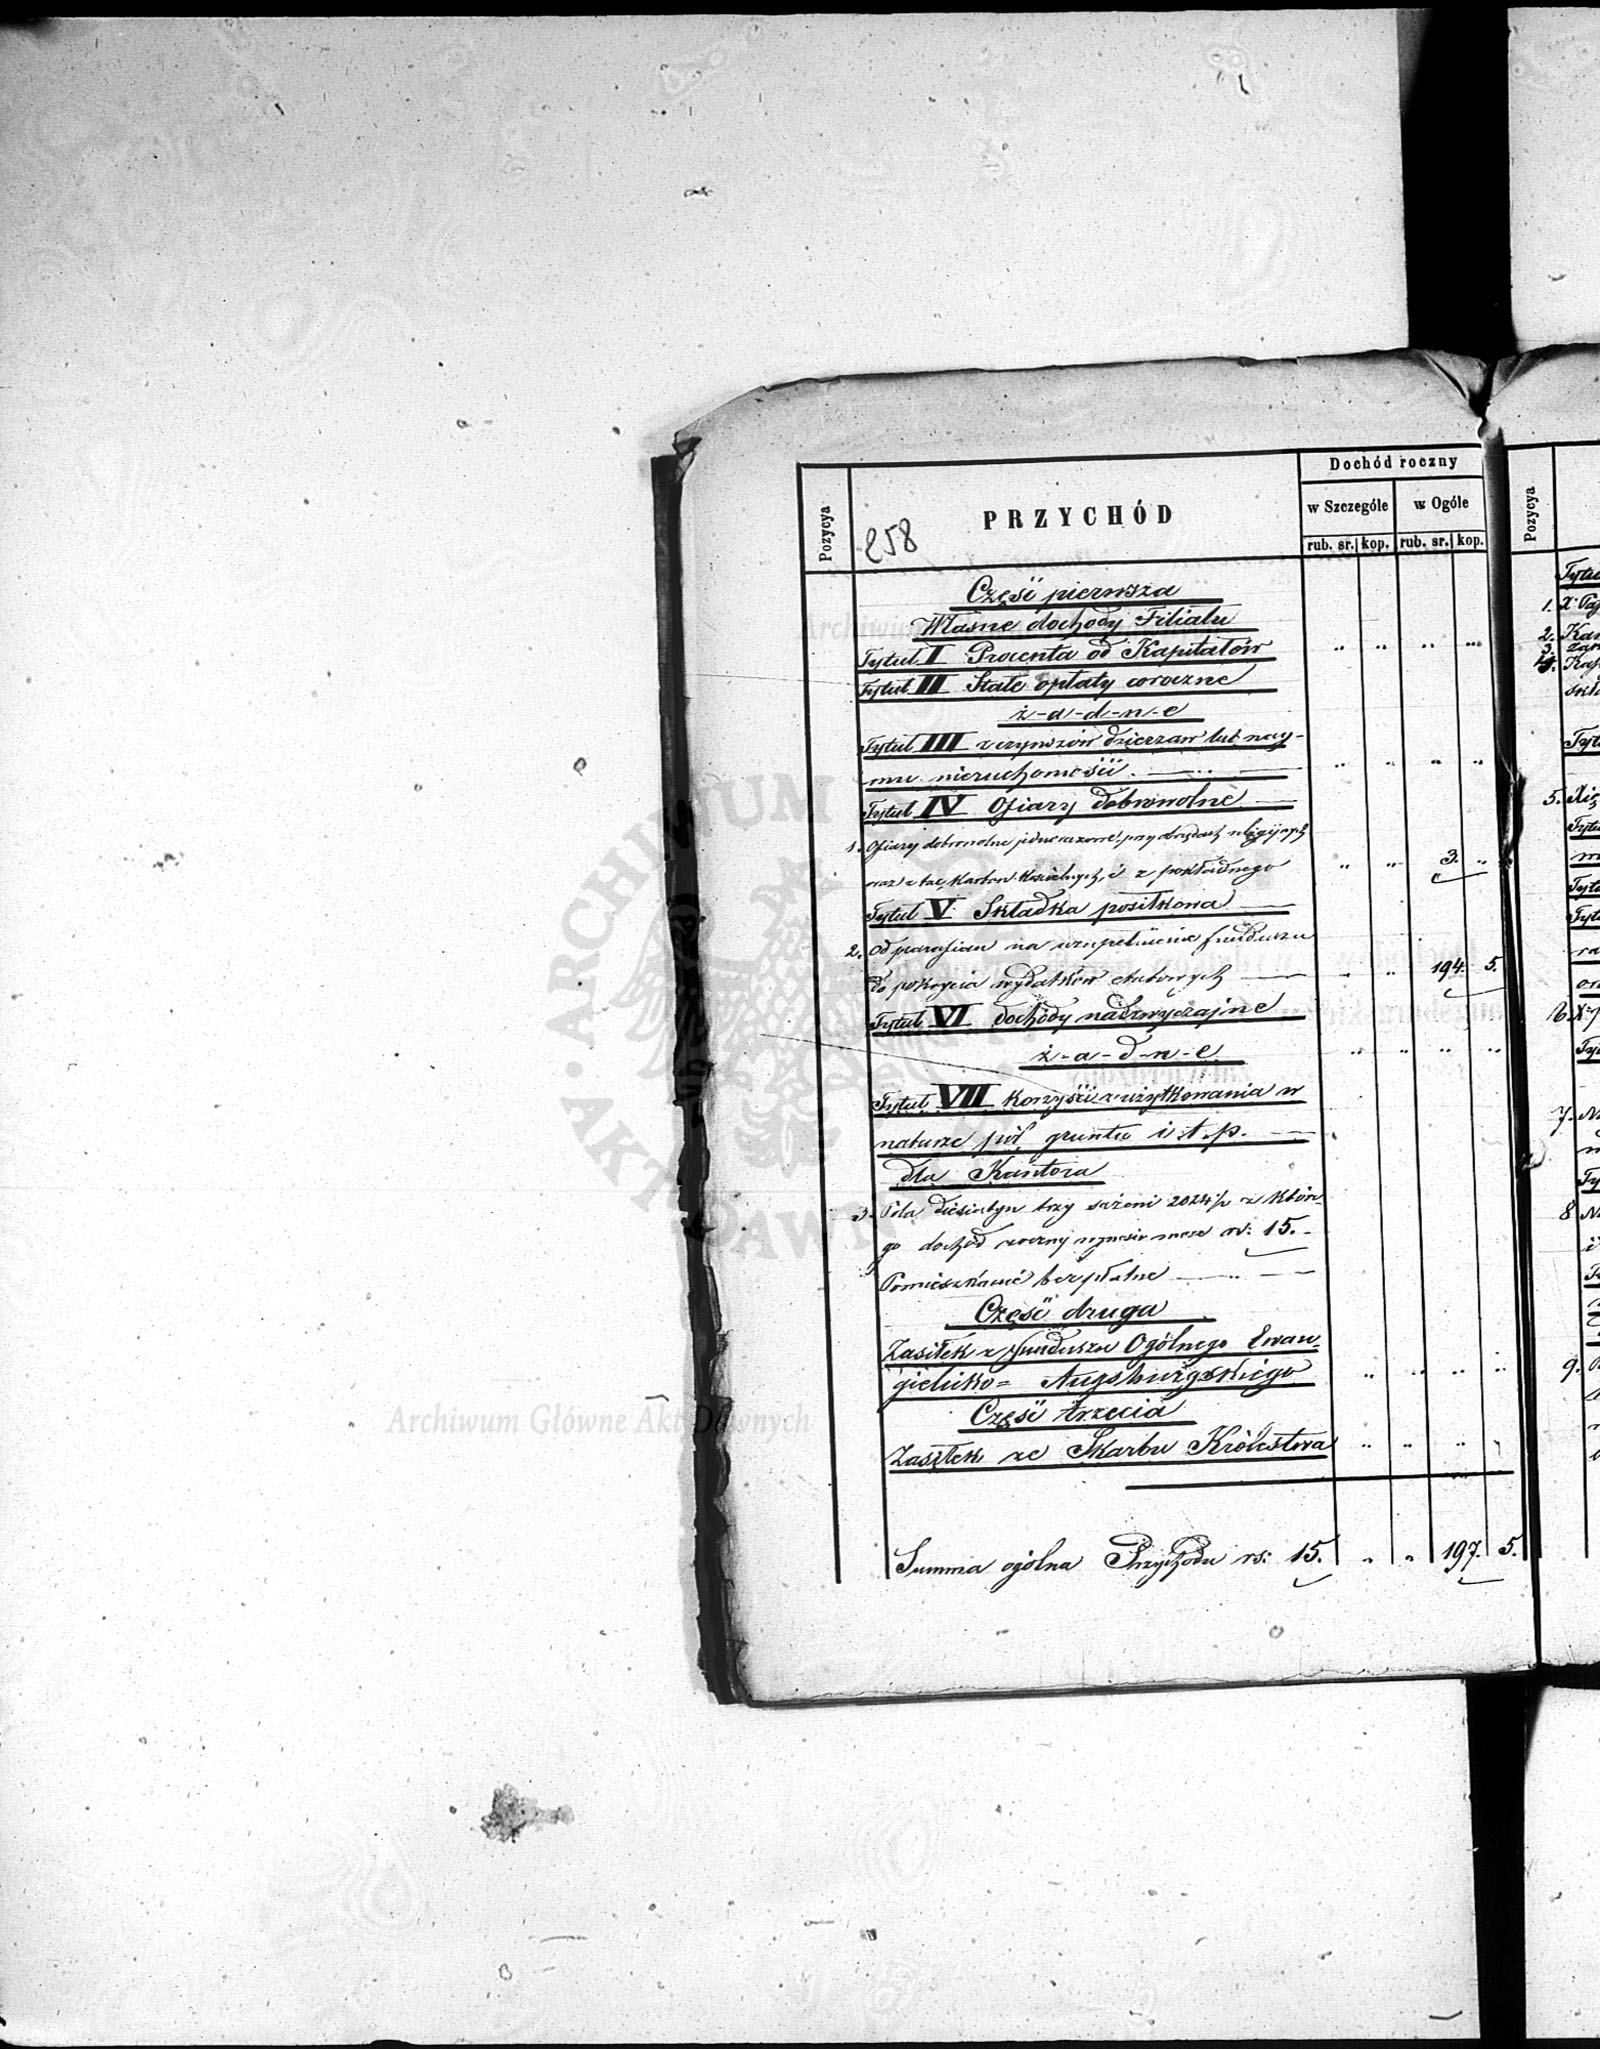 Dochód roczny
Pozycya
PRZYCHÓD
w Szczególe
w Ogóle
rub. sr. kop. rub. sr. kop.
258
Część pierwsza
Własne dochody Filiału
Tytuł I Procenta od Kapitałów " " " "
Tytuł II Stałe opłaty coroczne
ż-a-d-n-e
Tytuł III z czynszów dzierzaw lub nay-
mu nieruchomości. " " " "
Tytuł IV Ofiary dobrowolne
1. Ofiary dobrowolne jednorazowe, przy obrzędach religijnych
oraz z tac, Karbon Kościelnych, i z pokładnego " " 3. "
Tytuł V. Składka posiłkowa
2. Od parafian na uzupełnienie funduszu
do pokrycia wydatków etatowych " " 194. 5.
Tytuł VI dochody nadzwyczajne
ż-a-d-n-e " " " "
Tytuł VII Korzyści z użytkowania w
naturze pól, gruntu i.t.p.
dla Kantora
3. Pola diesiatyn trzy sażeni 2024½ z które-
go dochód roczny wynosić może rs: 15.
Pomieszkanie bezpłatne
Część druga
Zasiłek z funduszu Ogólnego Ewan-
gielicko= Augsburgskiego " " " "
Część trzecia
Zasiłek ze Skarbu Królestwa " " " "
Summa ogólna Przychodu rs: 15. " " 197. 5.
Pozycya
1.
2.
3.
4.
5.
6.
7.
8
9.
ARCHIWUM GŁÓWNE AKT DAWNYCH
Archiwum Główne Akt Dawnych